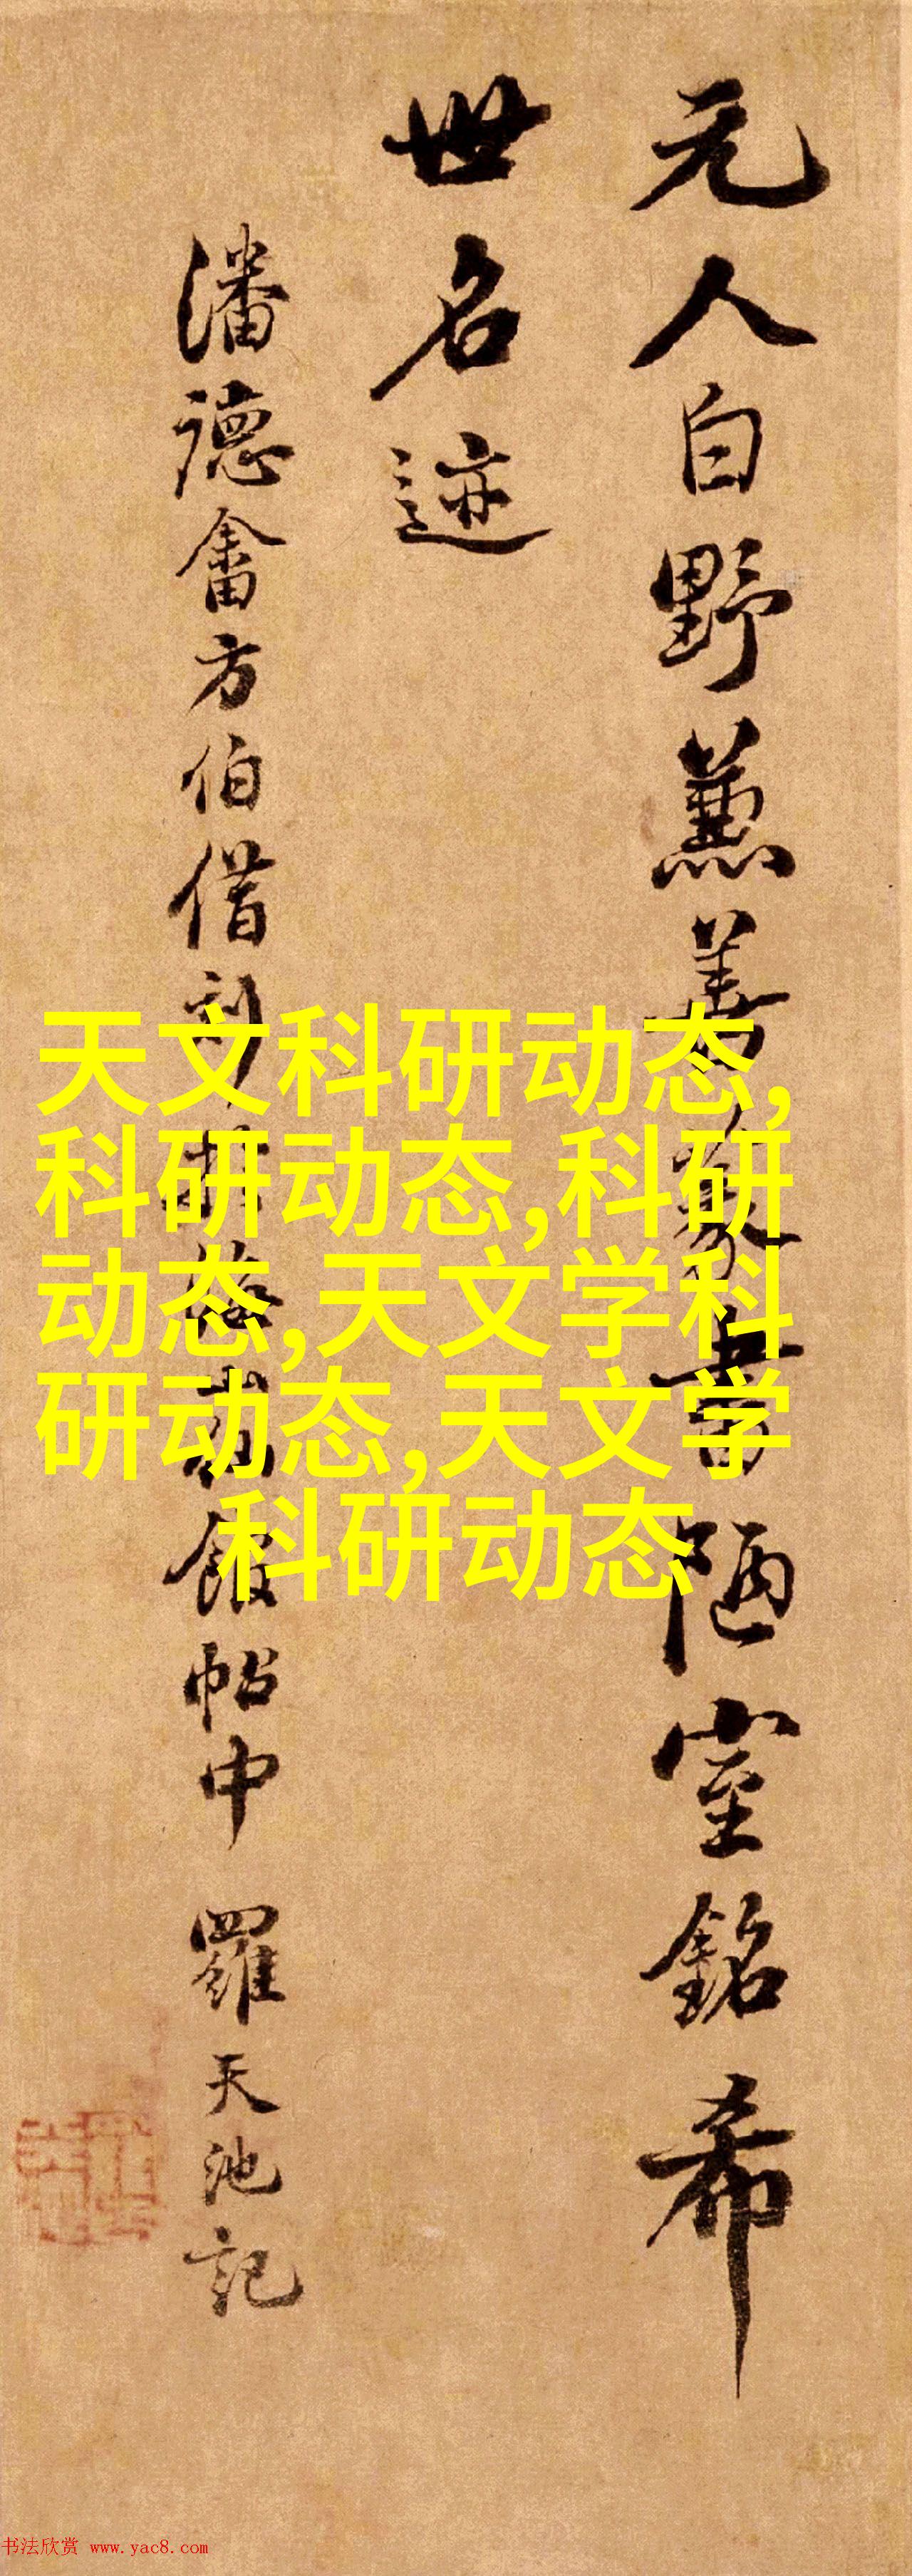 元人白野兼善篆書陋室銘希
世名迹
潘德畬方伯借刻館帖中 羅天池記
天文科研动态,
科研动态,科研
动态,天文学科
研动态,天文学
科研动态
书法欣赏 www.yac8.com